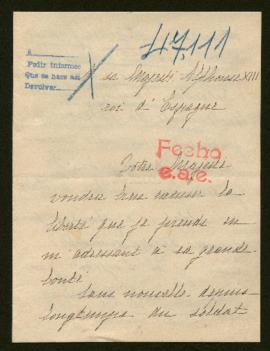 47.111
A
Pedir informes
Que se hace así
Devolver
sa Majesté Alphonse XIII
roi d'Espagne
Fecho
e.a.e.
Votre Majesté
voudra bien excuser la
liberté que je prends en
m'adressant à sa grande
bonté
Sans nouvelle depuis
longtemps du soldat